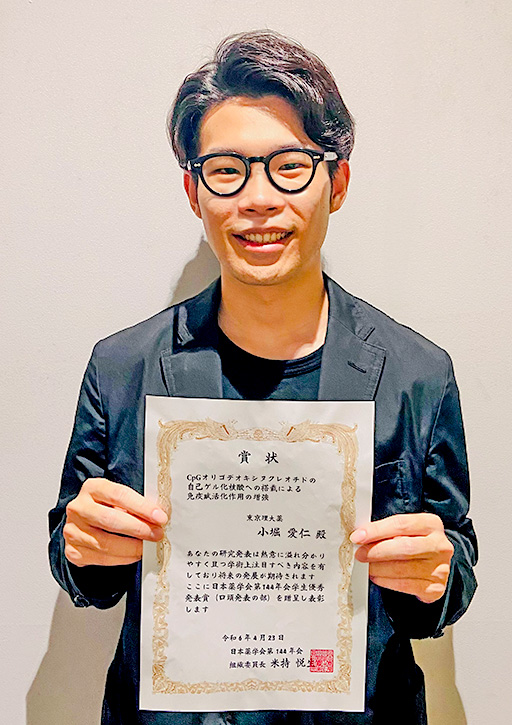 賞状
CpGオリゴデオキシヌクレオチドの
自己ゲル化核酸への搭載による
免疫賦活化作用の増強
東京理大薬
小堀 愛仁 殿
あなたの研究発表は熱意に溢れ分かり
やすく且つ学術上注目すべき内容を有
しており将来の発展が期待されます
ここに日本薬学会第144年会学生優秀
発表賞(口頭発表の部)を贈呈し表彰
します
令和6年4月23日
日本薬学会第144年会
組織委員長 米持 悦生